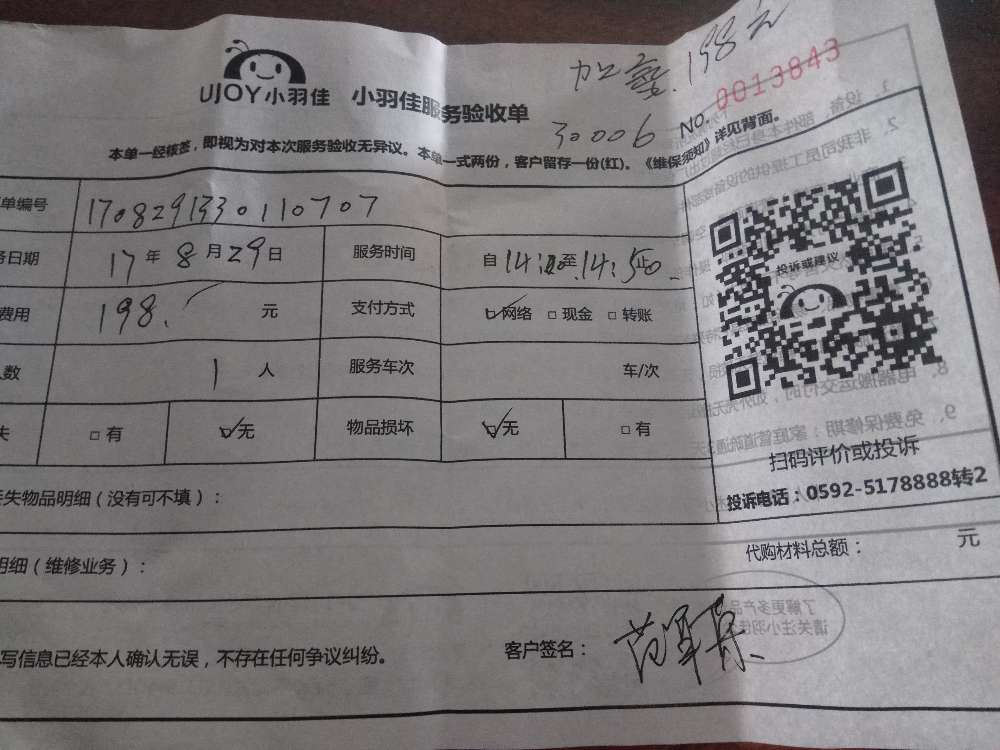 198元
UJOY小羽佳 小羽佳服务验收单
30006 NO. 0013843
本单一经核签，即视为对本次服务验收无异议。本单一式两份，客户留存一份(红)。《维保须知》详见背面。
单编号 1708291330110707
务日期 17年8月29日 服务时间 自14:00至14:50
费用 198. 元 支付方式 ☑网络 □现金 □转账
人数 1人 服务车次 车/次
失 □有 ☑无 物品损坏 ☑无 □有
投诉或建议
扫码评价或投诉
投诉电话：0592-5178888转2
丢失物品明细（没有可不填）：
明细（维修业务）： 代购材料总额： 元
写信息已经本人确认无误，不存在任何争议纠纷。 客户签名：